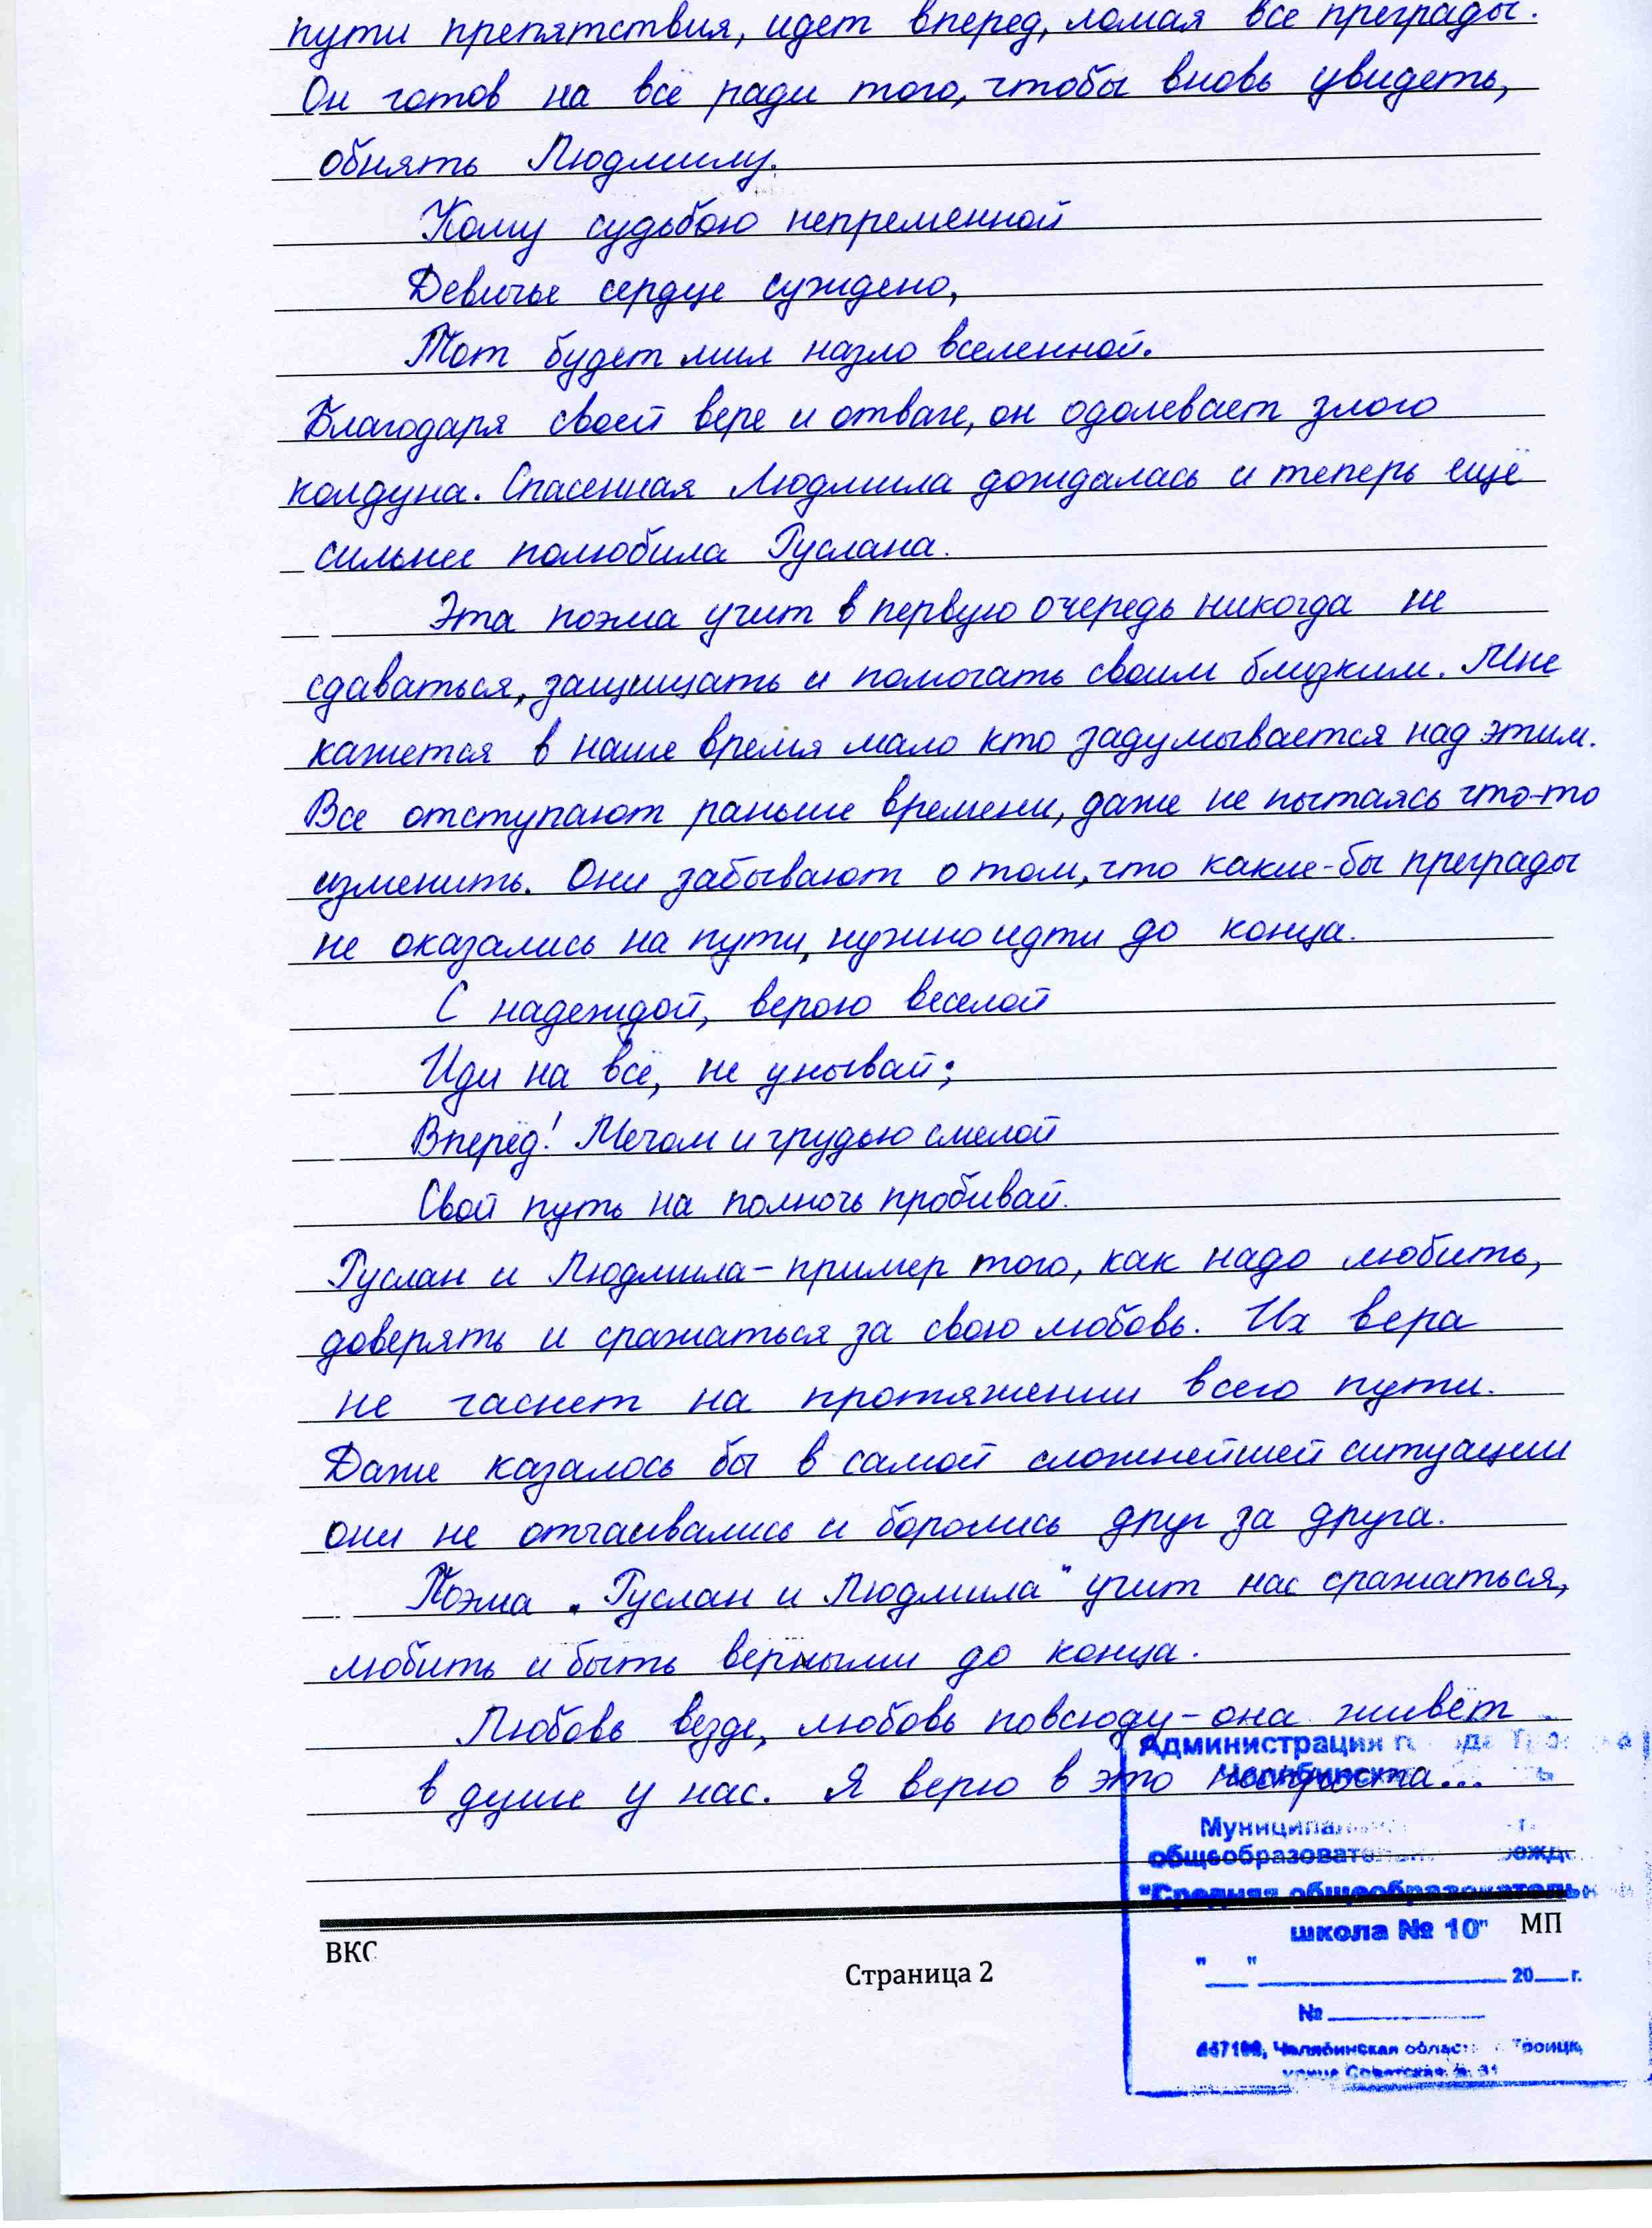 пути препятствия, идет вперед, ломая все преграды.
Он готов на всё ради того, чтобы вновь увидеть,
обнять Людмилу.
Кому судьбою непременной
Девичье сердце суждено,
Тот будет мил назло вселенной.
Благодаря своей вере и отваге, он одолевает злого
колдуна. Спасенная Людмила дождалась и теперь ещё
сильнее полюбила Руслана.
Эта поэма учит в первую очередь никогда не
сдаваться, защищать и помогать своим близким. Мне
кажется в наше время мало кто задумывается над этим.
Все отступают раньше времени, даже не пытаясь что-то
изменить. Они забывают о том, что какие-бы преграды
не оказались на пути, нужно идти до конца.
С надеждой, верою веселой
Иди на всё, не унывай;
Вперёд! Мечом и грудью смелой
Свой путь на полночь пробивай.
Руслан и Людмила – пример того, как надо любить,
доверять и сражаться за свою любовь. Их вера
не гаснет на протяжении всего пути.
Даже казалось бы в самой сложнейшей ситуации
они не отчаивались и боролись друг за друга.
Поэма "Руслан и Людмила" учит нас сражаться,
любить и быть верными до конца.
Любовь везде, любовь повсюду – она живёт
в душе у нас. Я верю в это неспроста...
Администрация
школа № 10"
МП
ВКС
Страница 2
"___" ______ 20__ г.
№ ______
Челябинская